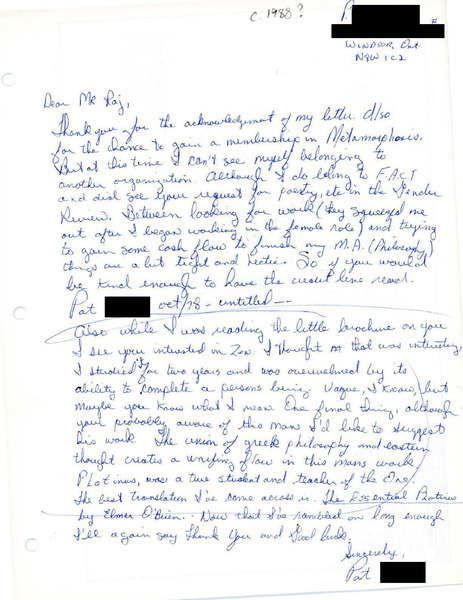 c. 1988?
P.
WINDSOR, Ont.
N8W 1C2
Dear Mr Raj,
Thank you for the acknowledgement of my letter. Also
for the chance to gain a membership in Metamorphosis.
But at this time I can't see myself belonging to
another organization. Although I do belong to F.A.C.T
and did see your request for poetry, etc in the Gender
Review. Between looking for work (they squeezed me
out after I began working in the female role) and trying
to gain some cash flow to finish my M.A. (Philosophy)
things are a bit tight and hectic. So if you would
be kind enough to have the credit line read.
Pat oct/78 - untitled -
Also while I was reading the little brochure on you
I see you interested in Zen. I thought that was interesting,
I studied it for two years and was overwelmed by its
ability to complete a persons being. Vague, I know, but
maybe you know what I mean. One final thing, although
your probably aware of this man I'd like to suggest
his work. The union of greek philosophy and eastern
thought creates a unifing flow in this mans work
Plotinus, was a true student and teacher of the One.
The best translation I've come across is. The Essential Plotinus
by Elmer O'Brien. Now that I've rambled on long enough
I'll again say Thank You and Good luck.
Sincerely,
Pat